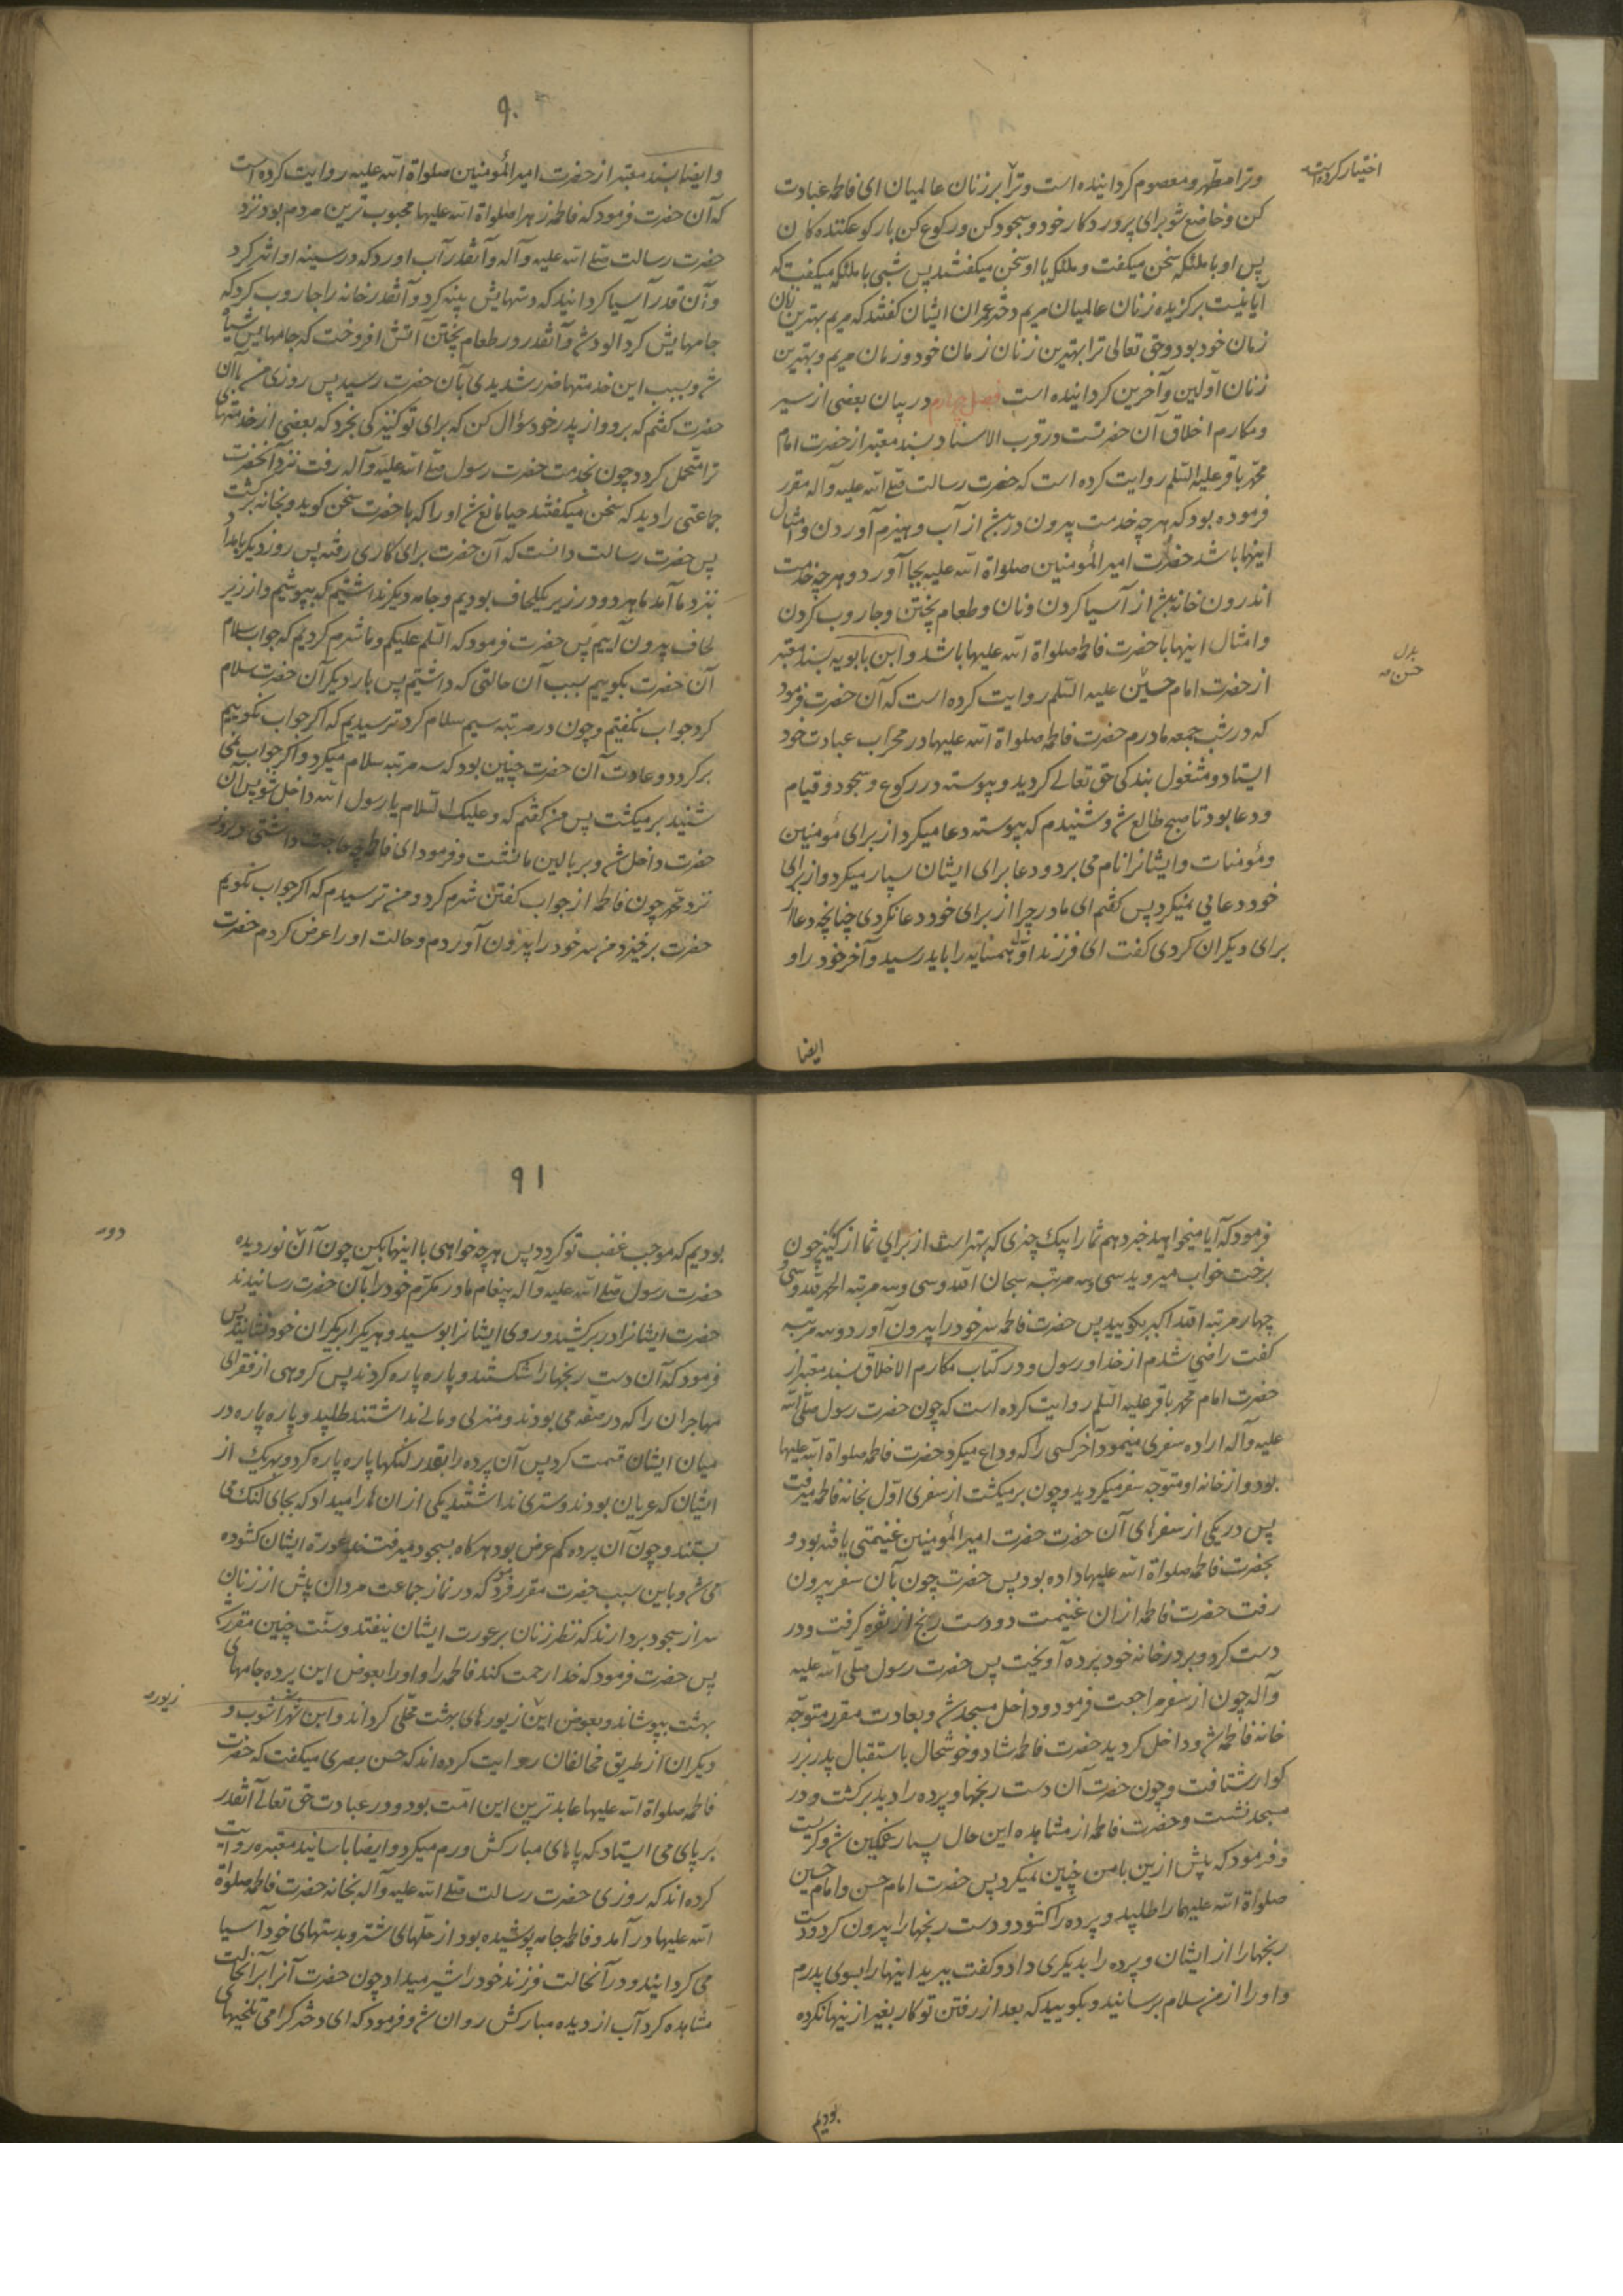 اختیار کرده است
وترا مطهر و معصوم کردانیده است وترا بر زنان عالمیان ای فاطمه عبادت
کن و خاضع شو برای پروردکار خود و سجود کن و رکوع کن با رکوع کننده کان
پس او با ملئکه سخن میکفت و ملئکه با او سخن میکفتند پس شبی با ملئکه میکفت که
آیا نیست برکزیده زنان عالمیان مریم دختر عمران ایشان کفتند که مریم بهترین زنان
زمان خود بود و حق تعالی ترا بهترین زنان زمان خود و زمان مریم و بهترین
زنان اولین و آخرین کردانیده است فصل چهارم در بیان بعضی از سیر
و مکارم اخلاق آن حضرتست در قرب الاسناد بسند معتبر از حضرت امام
محمد باقر علیه السلم روایت کرده است که حضرت رسالت صلی الله علیه وآله مقرر
فرموده بود که هر چه خدمت بیرون در باشد از آب و هیزم آوردن و امثال
اینها باشد حضرت امیر المؤمنین صلواة الله علیه بجا آورد و هر چه خدمت
اندرون خانه باشد از آسیا کردن و نان و طعام پختن و جاروب کردن
و امثال اینها با حضرت فاطمه صلواة الله علیها باشد و ابن بابویه بسند معتبر
بدل
حسن
از حضرت امام حسین علیه السلم روایت کرده است که آن حضرت فرمود
که در شب جمعه مادرم حضرت فاطمه صلواة الله علیها در محراب عبادت خود
ایستاد و مشغول بندکی حق تعالی کردید و پیوسته در رکوع و سجود و قیام
و دعا بود تا صبح طالع شد و شنیدم که پیوسته دعا میکرد از برای مؤمنین
و مؤمنات و ایشانرا نام می برد و دعا برای ایشان بسیار میکرد و از برای
خود دعایی نمیکرد پس کفتم ای مادر چرا از برای خود دعا نکردی چنانچه دعا از
برای دیکران کردی کفت ای فرزند اول همسایه را باید رسید و آخر خود را و
ایضا
۹۰
و ایضا بسند معتبر از حضرت امیر المؤمنین صلواة الله علیه روایت کرده است
که آن حضرت فرمود که فاطمه زهرا صلواة الله علیها محبوب ترین مردم بود نزد
حضرت رسالت صلی الله علیه وآله و آنقدر آب آورد که در سینه او اثر کرد
و آن قدر آسیا کردانید که دستهایش پینه کرد و آنقدر خانه را جاروب کرد که
جامهایش کرد آلود شد و آنقدر در طعام پختن آتش افروخت که جامهایش سیاه
شد و بسبب این خدمتها ضرر شدیدی بآن حضرت رسید پس روزی من بآن
حضرت کفتم که برو و از پدر خود سؤال کن که برای تو کنیزکی بخرد که بعضی از خدمتهای
ترا متحمل کردد چون بخدمت حضرت رسول صلی الله علیه وآله رفت نزد آنحضرت
جماعتی را دید که سخن میکفتند حیا مانع شد او را که با حضرت سخن کوید و بخانه برکشت
پس حضرت رسالت دانست که آن حضرت برای کاری رفته پس روز دیکر بامداد
نزد ما آمد ما هر دو در زیر یک لحاف بودیم و جامه دیکر نداشتیم که بپوشیم و از زیر
لحاف بیرون آییم پس حضرت فرمود که السلم علیکم و ما شرم کردیم که جواب سلام
آن حضرت بکوییم بسبب آن حالتی که داشتیم پس بار دیکر آن حضرت سلام
کرد جواب نکفتیم و چون در مرتبه سیم سلام کرد ترسیدیم که اکر جواب نکوییم
برکردد و عادت آن حضرت چنین بود که سه مرتبه سلام میکرد و اکر جواب نمی
شنید برمیکشت پس من کفتم که و علیک السلام یا رسول الله داخل شو پس آن
حضرت داخل شد و بر بالین ما نشست و فرمود ای فاطمه چه حاجت داشتی دیروز
نزد محمد چون فاطمه از جواب کفتن شرم کرد و من ترسیدم که اکر جواب نکویم
حضرت برخیزد من سر خود را بیرون آوردم و حالت او را عرض کردم حضرت
فرمود که آیا میخواهید خبر دهم شما را بیک چیزی که بهتر است از برای شما از کنیز چون
برخت خواب میروید سی و سه مرتبه سبحان الله و سی و سه مرتبه الحمد لله و سی و
چهار مرتبه الله اکبر بکویید پس حضرت فاطمه سر خود را بیرون آورد و سه مرتبه
کفت راضی شدم از خدا و رسول و در کتاب مکارم الاخلاق بسند معتبر از
حضرت امام محمد باقر علیه السلم روایت کرده است که چون حضرت رسول صلی الله
علیه وآله اراده سفری مینمود آخر کسی را که وداع میکرد حضرت فاطمه صلواة الله علیها
بود و از خانه او متوجه سفر میکردید و چون برمیکشت از سفری اول بخانه فاطمه میرفت
پس در یکی از سفرهای آن حضرت حضرت امیر المؤمنین غنیمتی یافته بود و
بحضرت فاطمه صلواة الله علیها داده بود پس حضرت چون بآن سفر بیرون
رفت حضرت فاطمه از ان غنیمت دو دست رنج از نقره کرفت و در
دست کرد و بر در خانه خود پرده آویخت پس حضرت رسول صلی الله علیه
وآله چون از سفر مراجعت فرمود و داخل مسجد شد و بعادت مقرر متوجه
خانه فاطمه شد و داخل کردید حضرت فاطمه شاد و خوشحال باستقبال پدر بزر
کوار شتافت و چون حضرت آن دست رنجها و پرده را دید برکشت و در
مسجد نشست و حضرت فاطمه از مشاهده این حال بسیار غمکین شد و کریست
و فرمود که پیش ازین با من چنین نمیکرد پس حضرت امام حسن و امام حسین
صلواة الله علیهما را طلبید و پرده را کشود و دست رنجها را بیرون کرد و دست
رنجها را از ایشان و پرده را بدیکری داد و کفت ببرید اینها را بسوی پدرم
و او را از من سلام برسانید و بکویید که بعد از رفتن تو کار بغیر از ینها نکرده
بودیم
۹۱
بودیم که موجب غضب تو کردد پس هر چه خواهی با اینها بکن چون آن نور دیده
دو
حضرت رسول صلی الله علیه وآله پیغام مادر مکرم خود را بآن حضرت رسانیدند
حضرت ایشانرا در بر کشید و روی ایشانرا بوسید و هر یک را بر یک ران خود نشانید پس
فرمود که آن دست رنجها را شکستند و پاره پاره کردند پس کروهی از فقرای
مهاجران را که در صفه می بودند و منزلی و مالی نداشتند طلبید و پاره پاره در
میان ایشان قسمت کرد پس آن پرده را بقدر لنکها پاره پاره کرد و بهر یک از
ایشان که عریان بودند و ستری نداشتند یکی از ان ها را میداد که بجای لنک می
بستند و چون آن پرده کم عرض بود هر کاه بسجود میرفتند عورة ایشان کشوده
می شد و باین سبب حضرت مقرر فرمود که در نماز جماعت مردان پیش از زنان
سر از سجود بردارند که نظر زنان بر عورت ایشان نیفتد و سنت چنین مقرر شد
پس حضرت فرمود که خدا رحمت کند فاطمه را و او را بعوض این پرده جامهای
زیور
بهشت بپوشاند و بعوض این زیورهای بهشت محلی کرداند و ابن شهر آشوب و
دیکران از طریق مخالفان روایت کرده اند که حسن بصری میکفت که حضرت
فاطمه صلواة الله علیها عابدترین این امت بود و در عبادت حق تعالی آنقدر
بر پای می ایستاد که پاهای مبارکش ورم میکرد و ایضا باسانید معتبره روایت
کرده اند که روزی حضرت رسالت صلی الله علیه وآله بخانه حضرت فاطمه صلواة
الله علیها در آمد و فاطمه جامه پوشیده بود از جلهای شتر و بدستهای خود آسیا
می کردانید و در آنحالت فرزند خود را شیر میداد چون حضرت آنرا بر آنحالت
مشاهده کرد آب از دیده مبارکش روان شد و فرمود که ای دختر کرامی تلخیهای